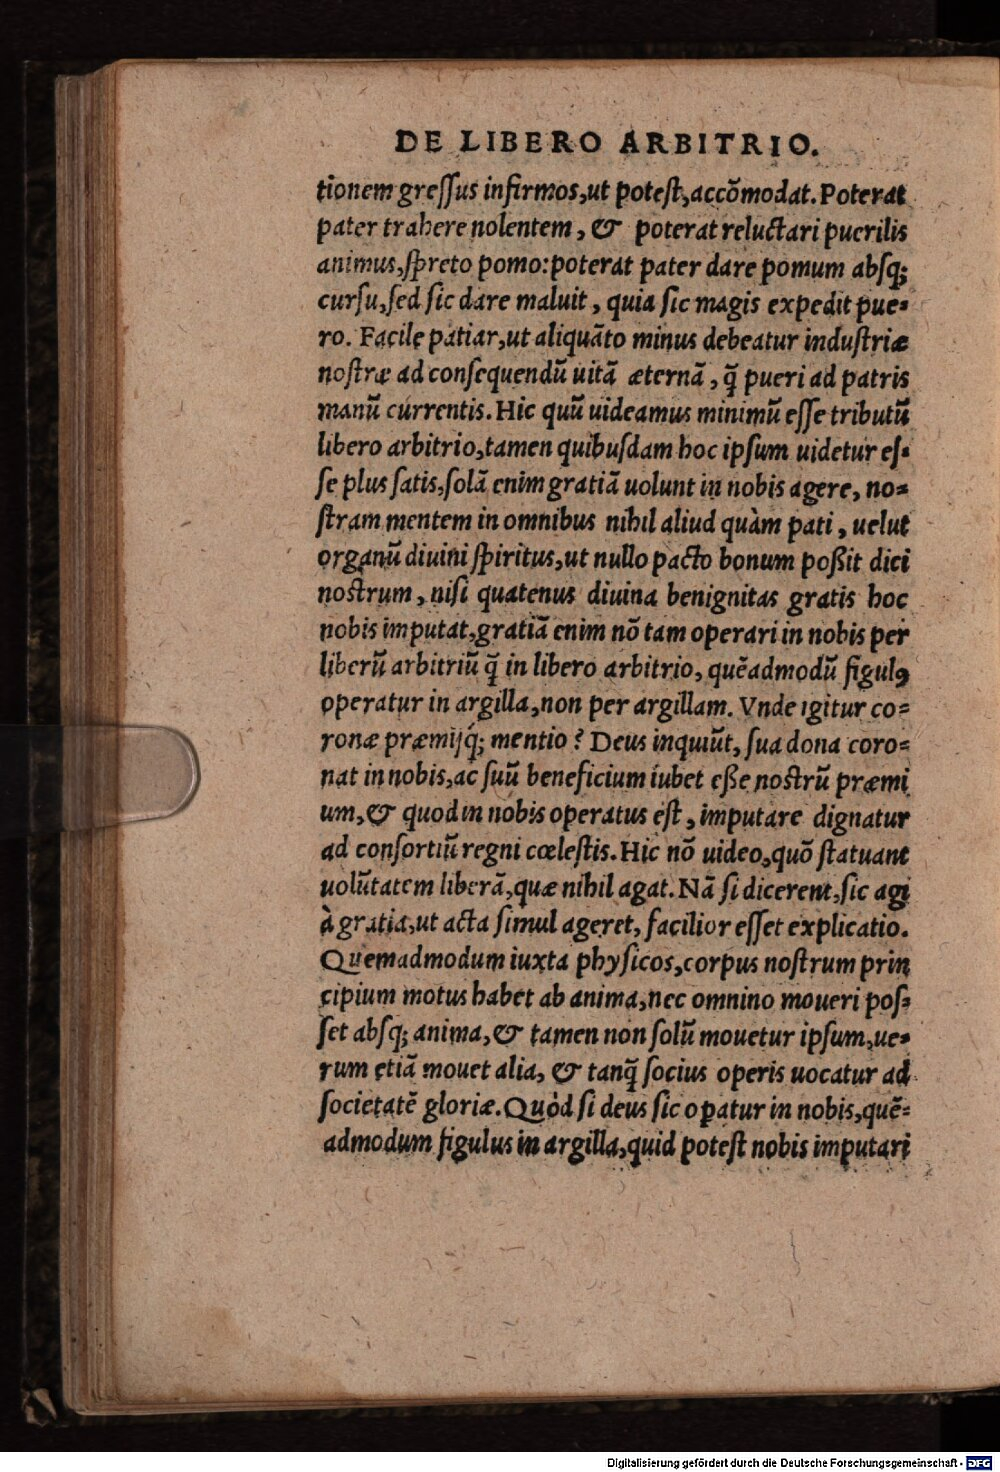 DE LIBERO ARBITRIO.
tionem greſſus infirmos, ut poteſt, accõmodat. Poterat
pater trahere nolentem, & poterat reluctari puerilis
animus, ſpreto pomo: poterat pater dare pomum abſq;
curſu, ſed ſic dare maluit, quia ſic magis expedit pue-
ro. Facile patiar, ut aliquãto minus debeatur induſtriæ
noſtræ ad conſequendũ uitã æternã, q̃ pueri ad patris
manũ currentis. Hic quũ uideamus minimũ eſſe tributũ
libero arbitrio, tamen quibuſdam hoc ipſum uidetur eſ-
ſe plus ſatis, ſolã enim gratiã uolunt in nobis agere, no-
ſtram mentem in omnibus nihil aliud quàm pati, uelut
organũ diuini ſpiritus, ut nullo pacto bonum poßit dici
noſtrum, niſi quatenus diuina benignitas gratis hoc
nobis imputat, gratiã enim nõ tam operari in nobis per
liberũ arbitriũ q̃ in libero arbitrio, quẽadmodũ figulꝰ
operatur in argilla, non per argillam. Vnde igitur co-
ronæ præmijq́; mentio? Deus inquiũt, ſua dona coro-
nat in nobis, ac ſuũ beneficium iubet eße noſtrũ præmi
um, & quod in nobis operatus eſt, imputare dignatur
ad conſortiũ regni cœleſtis. Hic nõ uideo, quõ ſtatuant
uolũtatem liberã, quæ nihil agat. Nã ſi dicerent, ſic agi
à gratia, ut acta ſimul ageret, facilior eſſet explicatio.
Quemadmodum iuxta phyſicos, corpus noſtrum prin
cipium motus habet ab anima, nec omnino moueri poſ-
ſet abſq; anima, & tamen non ſolũ mouetur ipſum, ue-
rum etiã mouet alia, & tanq̃ ſocius operis uocatur ad
ſocietatẽ gloriæ. Quòd ſi deus ſic oꝑatur in nobis, quẽ-
admodum figulus in argilla, quid poteſt nobis imputari
Digitalisierung gefördert durch die Deutsche Forschungsgemeinschaft - DFG